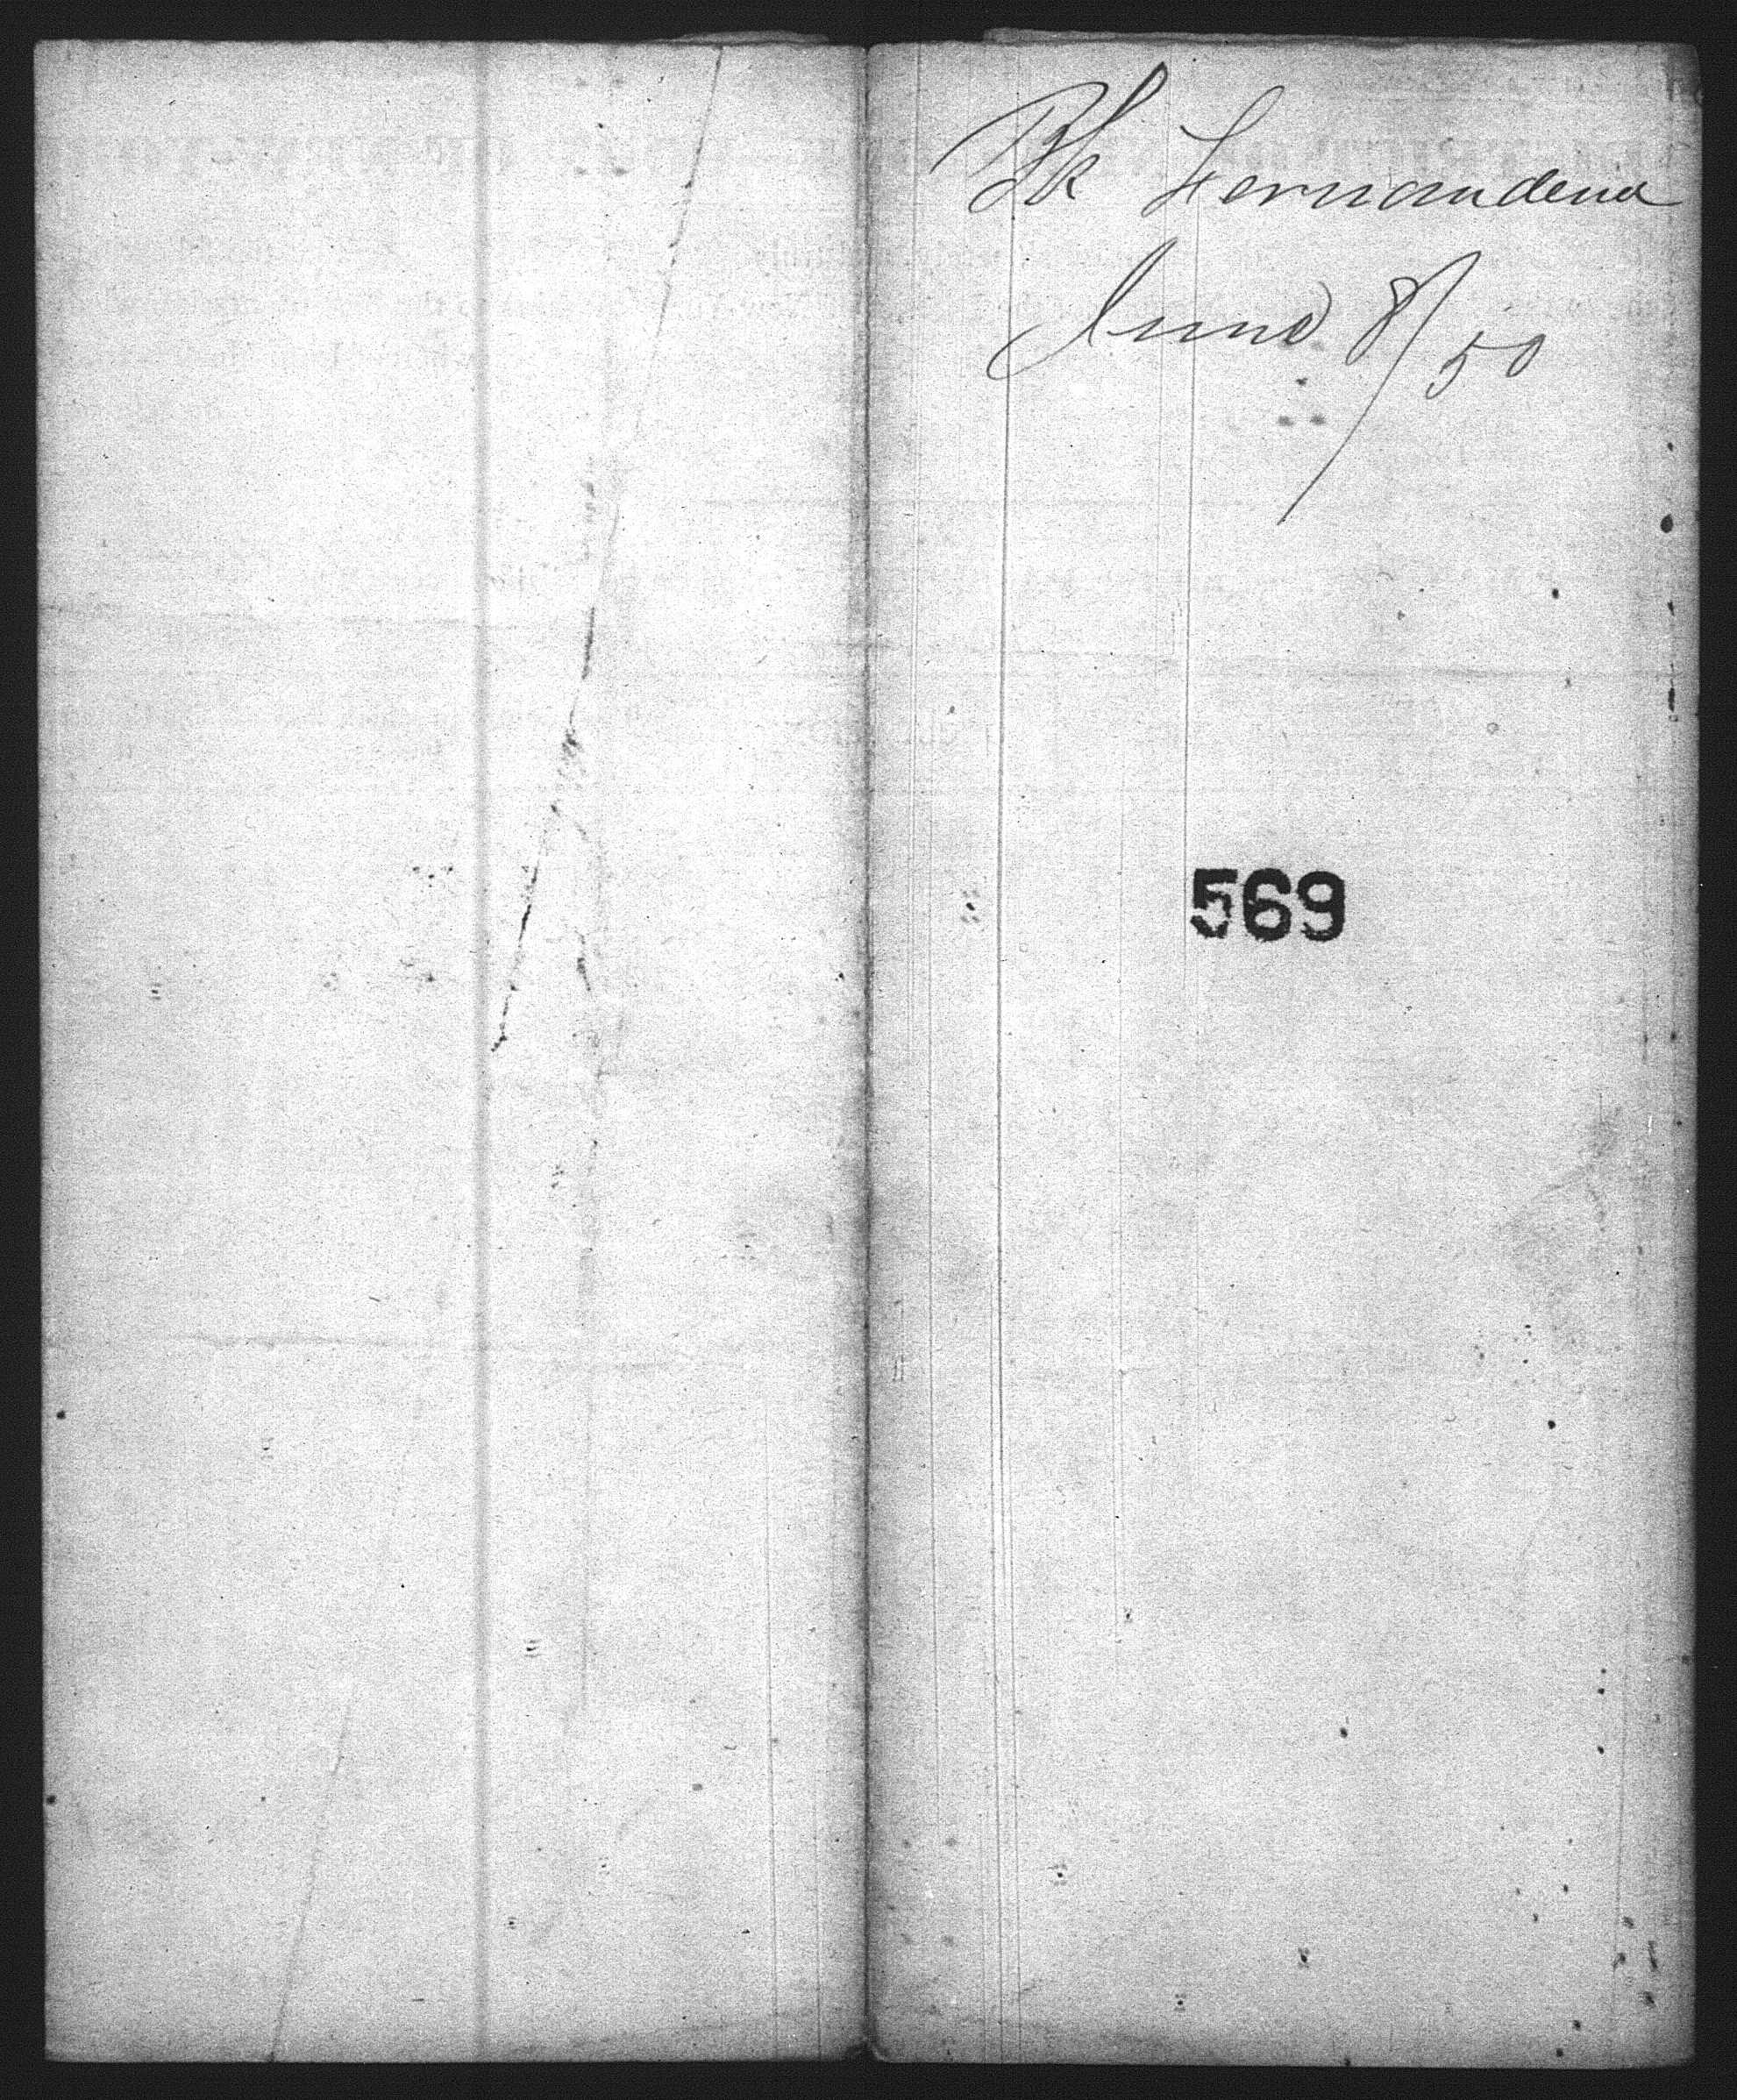 Bk Fernandena
June 8/50
569